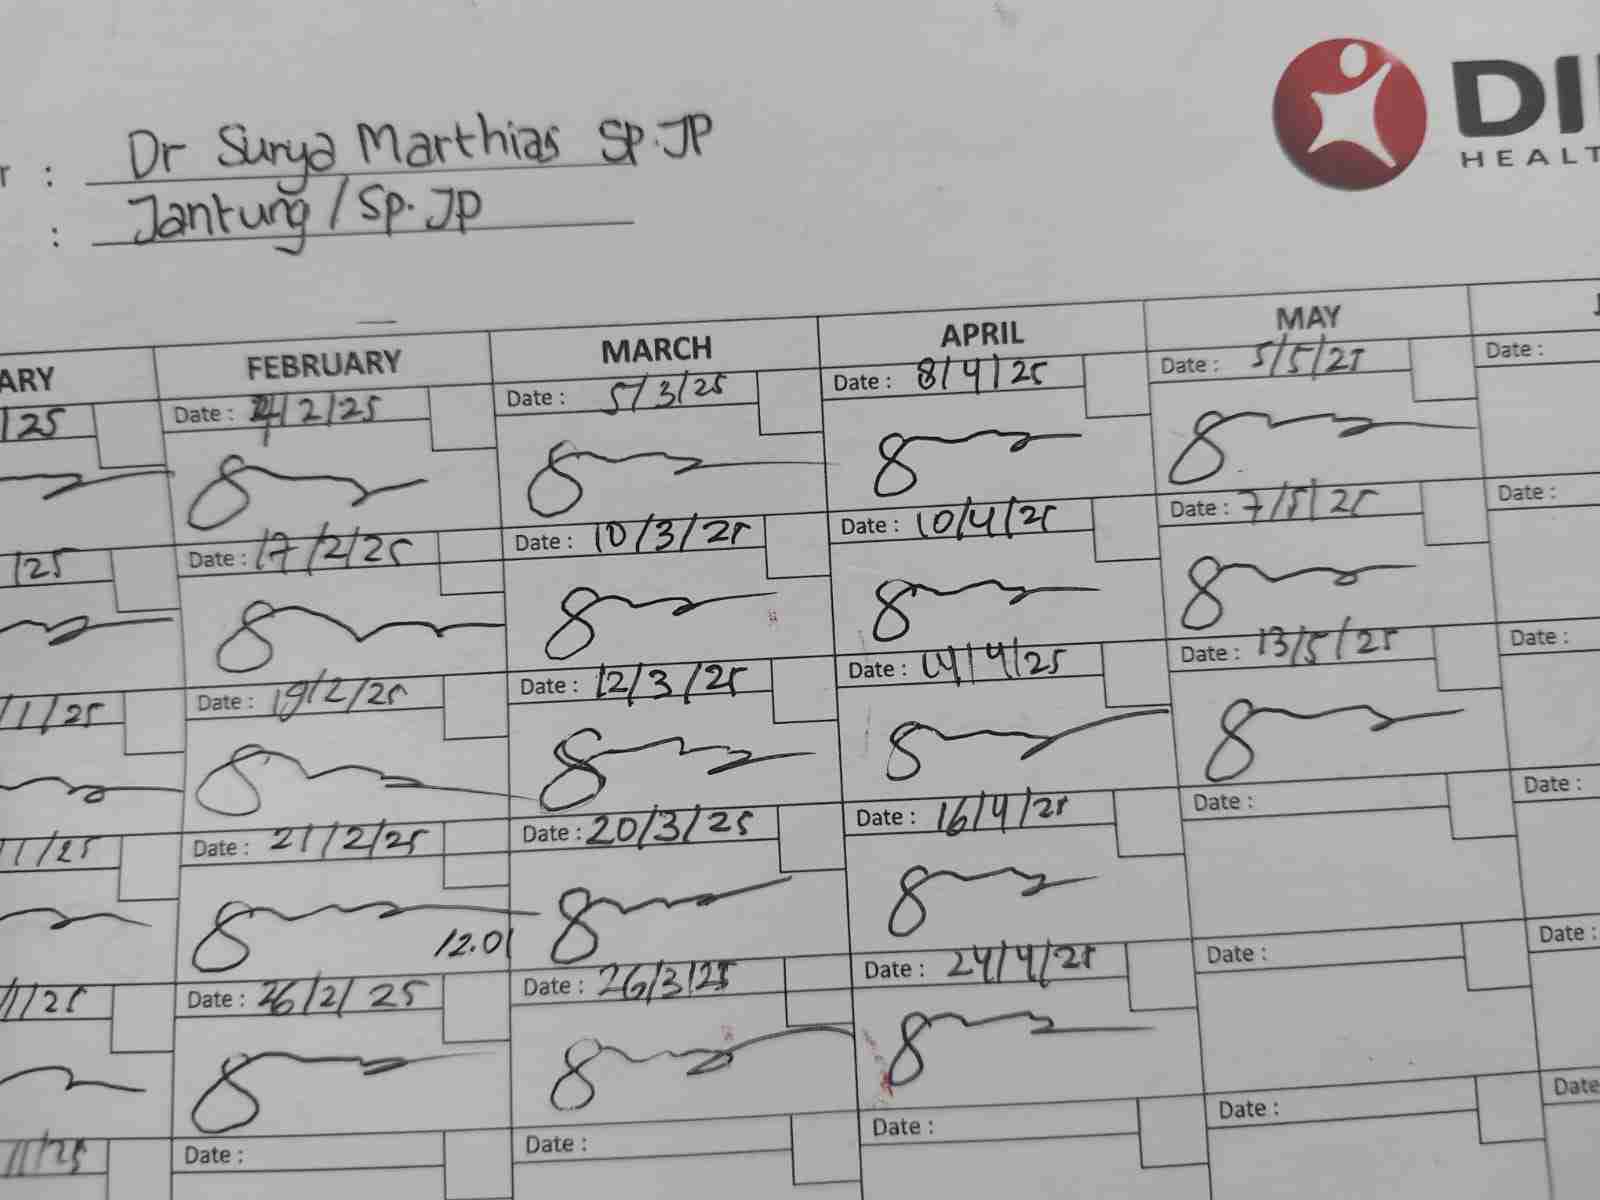 : Dr Surya Marthias Sp.JP
: Jantung / Sp.JP
DI
HEALT
ARY FEBRUARY MARCH APRIL MAY
/25 Date : 4/2/25 Date : 5/3/25 Date : 8/4/25 Date : 5/5/25 Date :
/25 Date : 17/2/25 Date : 10/3/25 Date : 10/4/25 Date : 7/5/25 Date :
/1/25 Date : 19/2/25 Date : 12/3/25 Date : 14/4/25 Date : 13/5/25 Date :
/1/25 Date : 21/2/25 Date : 20/3/25 Date : 16/4/25 Date : Date :
12.01
/1/25 Date : 26/2/25 Date : 26/3/25 Date : 24/4/25 Date : Date :
/1/25 Date : Date : Date : Date : Date